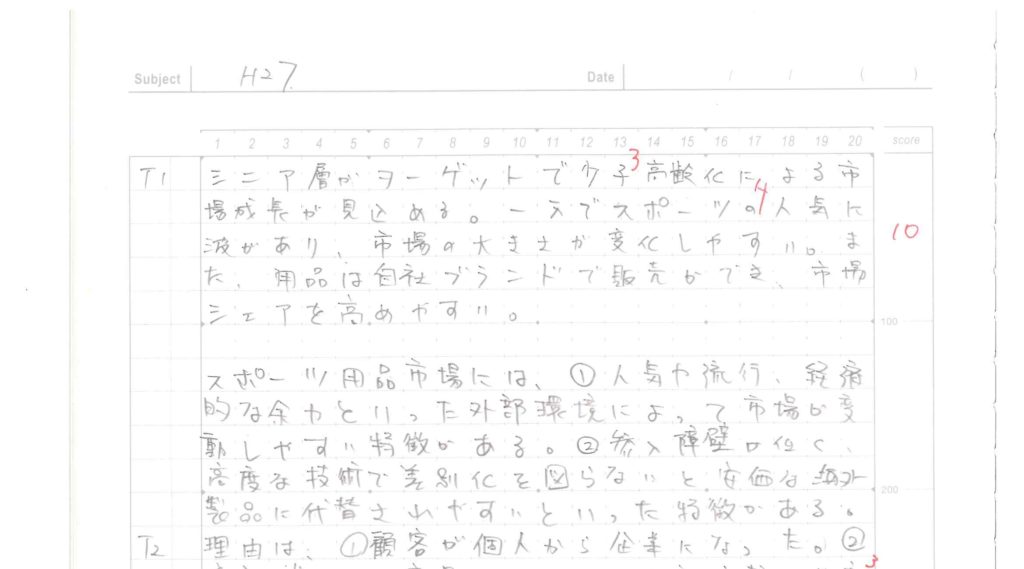 Subject H27. Date / / ( )
1 2 3 4 5 6 7 8 9 10 11 12 13 14 15 16 17 18 19 20 score
3
T1 シニア層がターゲットで少子高齢化による市
4
場成長が見込める。一方でスポーツの人気に
10
波があり、市場の大きさが変化しやすい。ま
た、用品は自社ブランドで販売ができ、市場
シェアを高めやすい。
100
スポーツ用品市場には、①人気や流行、経済
的な余力といった外部環境によって市場が変
動しやすい特徴がある。②参入障壁が低く、
高度な技術で差別化を図らないと安価な海外
200
製品に代替されやすいといった特徴がある。
T2 理由は、①顧客が個人から企業になった。②
3